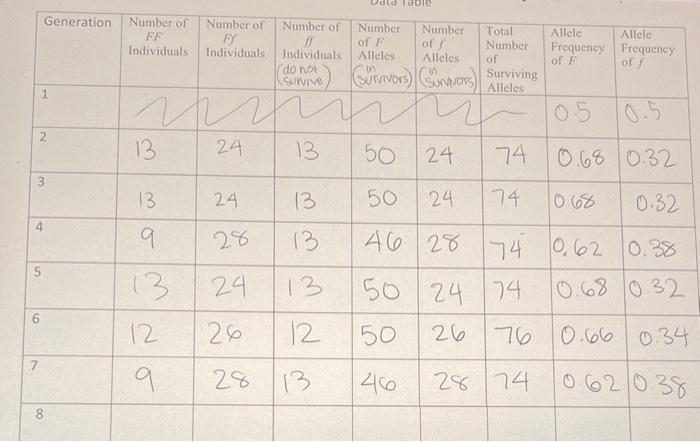 Data Table
Generation | Number of FF Individuals | Number of Ff Individuals | Number of ff Individuals (do not survive) | Number of F Alleles (in survivors) | Number of f Alleles (in survivors) | Total Number of Surviving Alleles | Allele Frequency of F | Allele Frequency of f
1 | 0.5 | 0.5
2 | 13 | 24 | 13 | 50 | 24 | 74 | 0.68 | 0.32
3 | 13 | 24 | 13 | 50 | 24 | 74 | 0.68 | 0.32
4 | 9 | 28 | 13 | 46 | 28 | 74 | 0.62 | 0.38
5 | 13 | 24 | 13 | 50 | 24 | 74 | 0.68 | 0.32
6 | 12 | 26 | 12 | 50 | 26 | 76 | 0.66 | 0.34
7 | 9 | 28 | 13 | 46 | 28 | 74 | 0.62 | 0.38
8